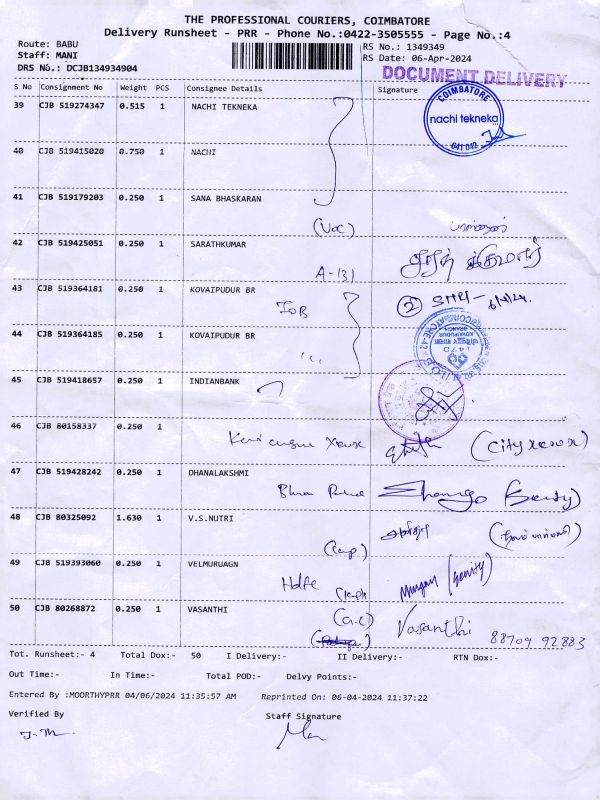 THE PROFESSIONAL COURIERS, COIMBATORE
Delivery Runsheet - PRR - Phone No.:0422-3505555 - Page No.:4
Route: BABU
Staff: MANI
DRS No.: DCJB134934904
RS No.: 1349349
RS Date: 06-Apr-2024
DOCUMENT DELIVERY
S No Consignment No Weight PCS Consignee Details Signature
39 CJB 519274347 0.515 1 NACHI TEKNEKA
COIMBATORE
nachi tekneka
641 042
40 CJB 519415020 0.750 1 NACHI
41 CJB 519179203 0.250 1 SANA BHASKARAN
42 CJB 519425051 0.250 1 SARATHKUMAR
A-131
43 CJB 519364181 0.250 1 KOVAIPUDUR BR
IOB
44 CJB 519364185 0.250 1 KOVAIPUDUR BR
45 CJB 519418657 0.250 1 INDIANBANK
46 CJB 80158337 0.250 1
xerox (City xerox)
47 CJB 519428242 0.250 1 DHANALAKSHMI
48 CJB 80325092 1.630 1 V.S.NUTRI
49 CJB 519393060 0.250 1 VELMURUAGN
Murugan
50 CJB 80268872 0.250 1 VASANTHI
Vasanthi 88709 92883
Tot. Runsheet:- 4 Total Dox:- 50 I Delivery:- II Delivery:- RTN Dox:-
Out Time:- In Time:- Total POD:- Delvy Points:-
Entered By :MOORTHYPRR 04/06/2024 11:35:57 AM Reprinted On: 06-04-2024 11:37:22
Verified By Staff Signature